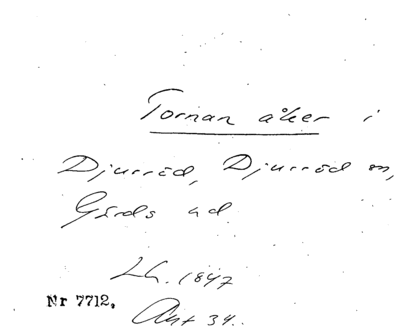 Tornan åker i
Djurröd, Djurröd sn,
Gärds hd
Lh. 1847
Nr 7712.
Akt 34.